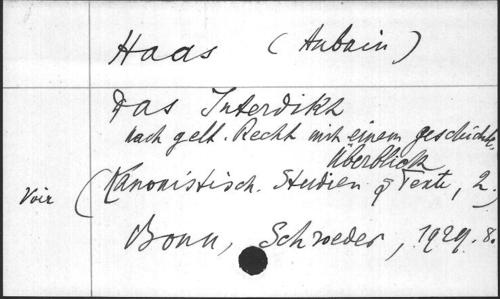 Haas (Aubain)
Das Interdikt
nach gelt. Recht mit einem geschichtl.
Überblick
Voir (Kanonistisch. Studien q Texte, 2
Bonn, Schroeder, 1929. 8.